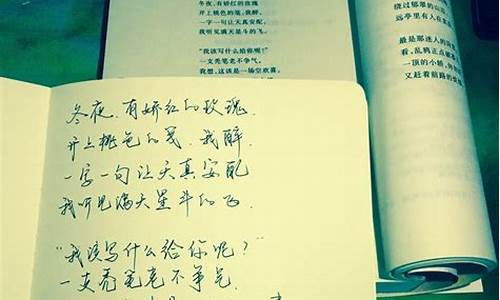 冬夜,有娇红的玫瑰
开上桃色的笺,我醉,
一字一句让天真安配,
我听见满天星斗的飞。
“我该写什么给你呢?”
一支秃笔老不争气。
我想,这该是一场空欢喜。
绕过郁郁的山
远亭里有人在
最是那迷人的
看,乱鸦正点破
一顶的小轿,
又赶着前路的
冬夜,有娇红的玫瑰,
开上桃色的笺,我醉,
一字一句让天真安配
我听见满天星斗的飞.
“我该写什么给你呢?”
一支秃笔老不争气.